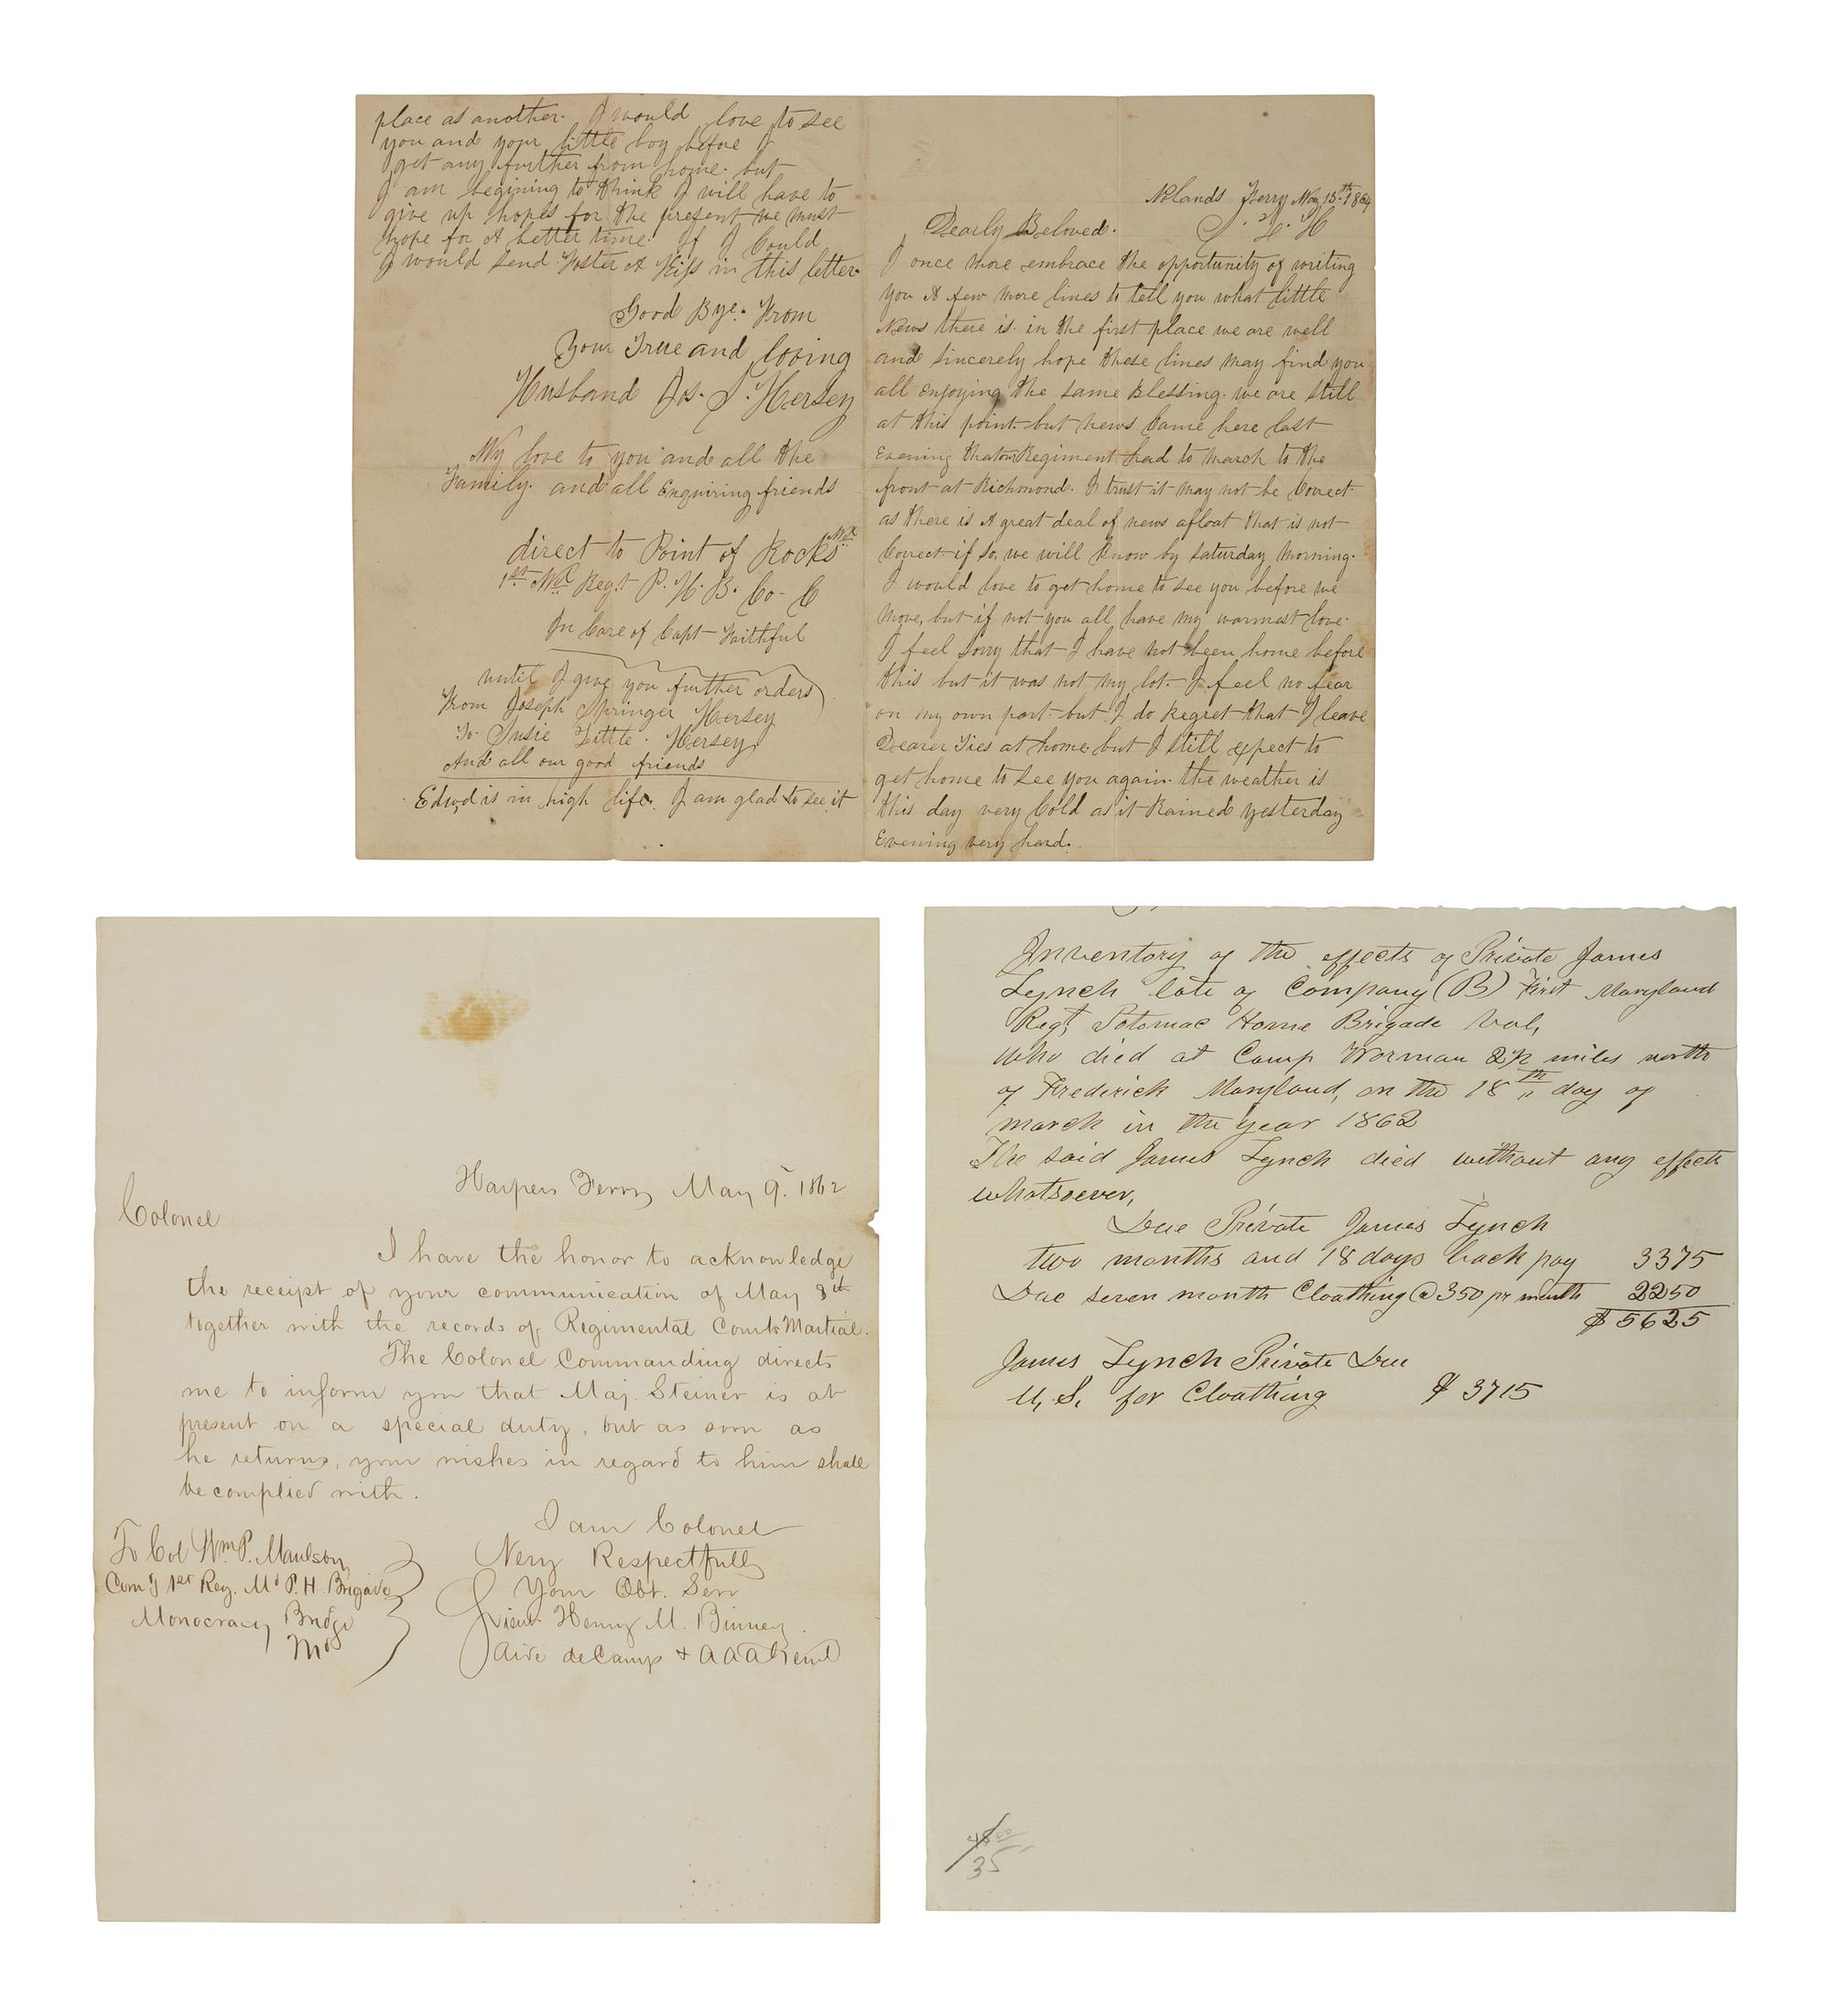 place as another. I would love to see
you and your little boy before I
get any further from home. but
I am begining to think I will have to
give up hopes for the present we must
hope for A better time. If I Could
I would send Foster A Kiss in this letter
Good Bye. From
Your True and loving
Husband Jos. S. Hersey
My love to you and all the
Family. and all Enquiring friends
direct to Point of Rocks Md
1st Md Regt P. H. B. Co- C
In Care of Capt Faithful
until I give you further orders
From Joseph Springer Hersey
To Susie Little Hersey
And all our good friends
Edwd is in high life. I am glad to see it
Nolands Ferry May 13th 1864
Dearly Beloved.
I once more embrace the opportunity of writing
you A few more lines to tell you what little
News there is. in the first place we are well
and sincerely hope these lines may find you
all enjoying the same Blessing. we are still
at this point but news Came here last
Evening that our Regiment had to march to the
front at Richmond. I trust it may not be Correct
as there is A great deal of news afloat that is not
Correct if so, we will know by saturday morning.
I would love to get home to see you before we
move, but if not you all have my warmest love.
I feel sorry that I have not been home before
this but it was not my lot. I feel no fear
on my own part. but I do Regret that I leave
Dearer Ties at home. but I still expect to
get home to see you again. the weather is
this day very Cold as it Rained yesterday
Evening very hard.
Harpers Ferry May 9. 1862
Colonel
I have the honor to acknowledge
the receipt of your communication of May 8th
together with the records of Regimental Courts Martial.
The Colonel Commanding directs
me to inform you that Maj. Steiner is at
present on a special duty, but as soon as
he returns, your wishes in regard to him shall
be complied with.
I am Colonel
Very Respectfully
Your Obt. Serv
Lieut Henry M. Binney
Aide de Camp & AAAGenl
To Col Wm P. Maulsby
Com'g 1st Reg. Md P. H. Brigade
Monocracy Bridge
Md
Inventory of the effects of Private James
Lynch late of Company (B) First Maryland
Regt, Potomac Home Brigade Vol,
who died at Camp Worman 2½ miles north
of Frederick Maryland, on the 18th day of
march in the year 1862
The said James Lynch died without any effects
whatsoever,
Due Private James Lynch
two months and 18 days back pay 3375
Due seven month Cloathing @ 350 pr month 2250
$ 5625
James Lynch Private Due
U. S. for Cloathing $ 3715
48 00
35